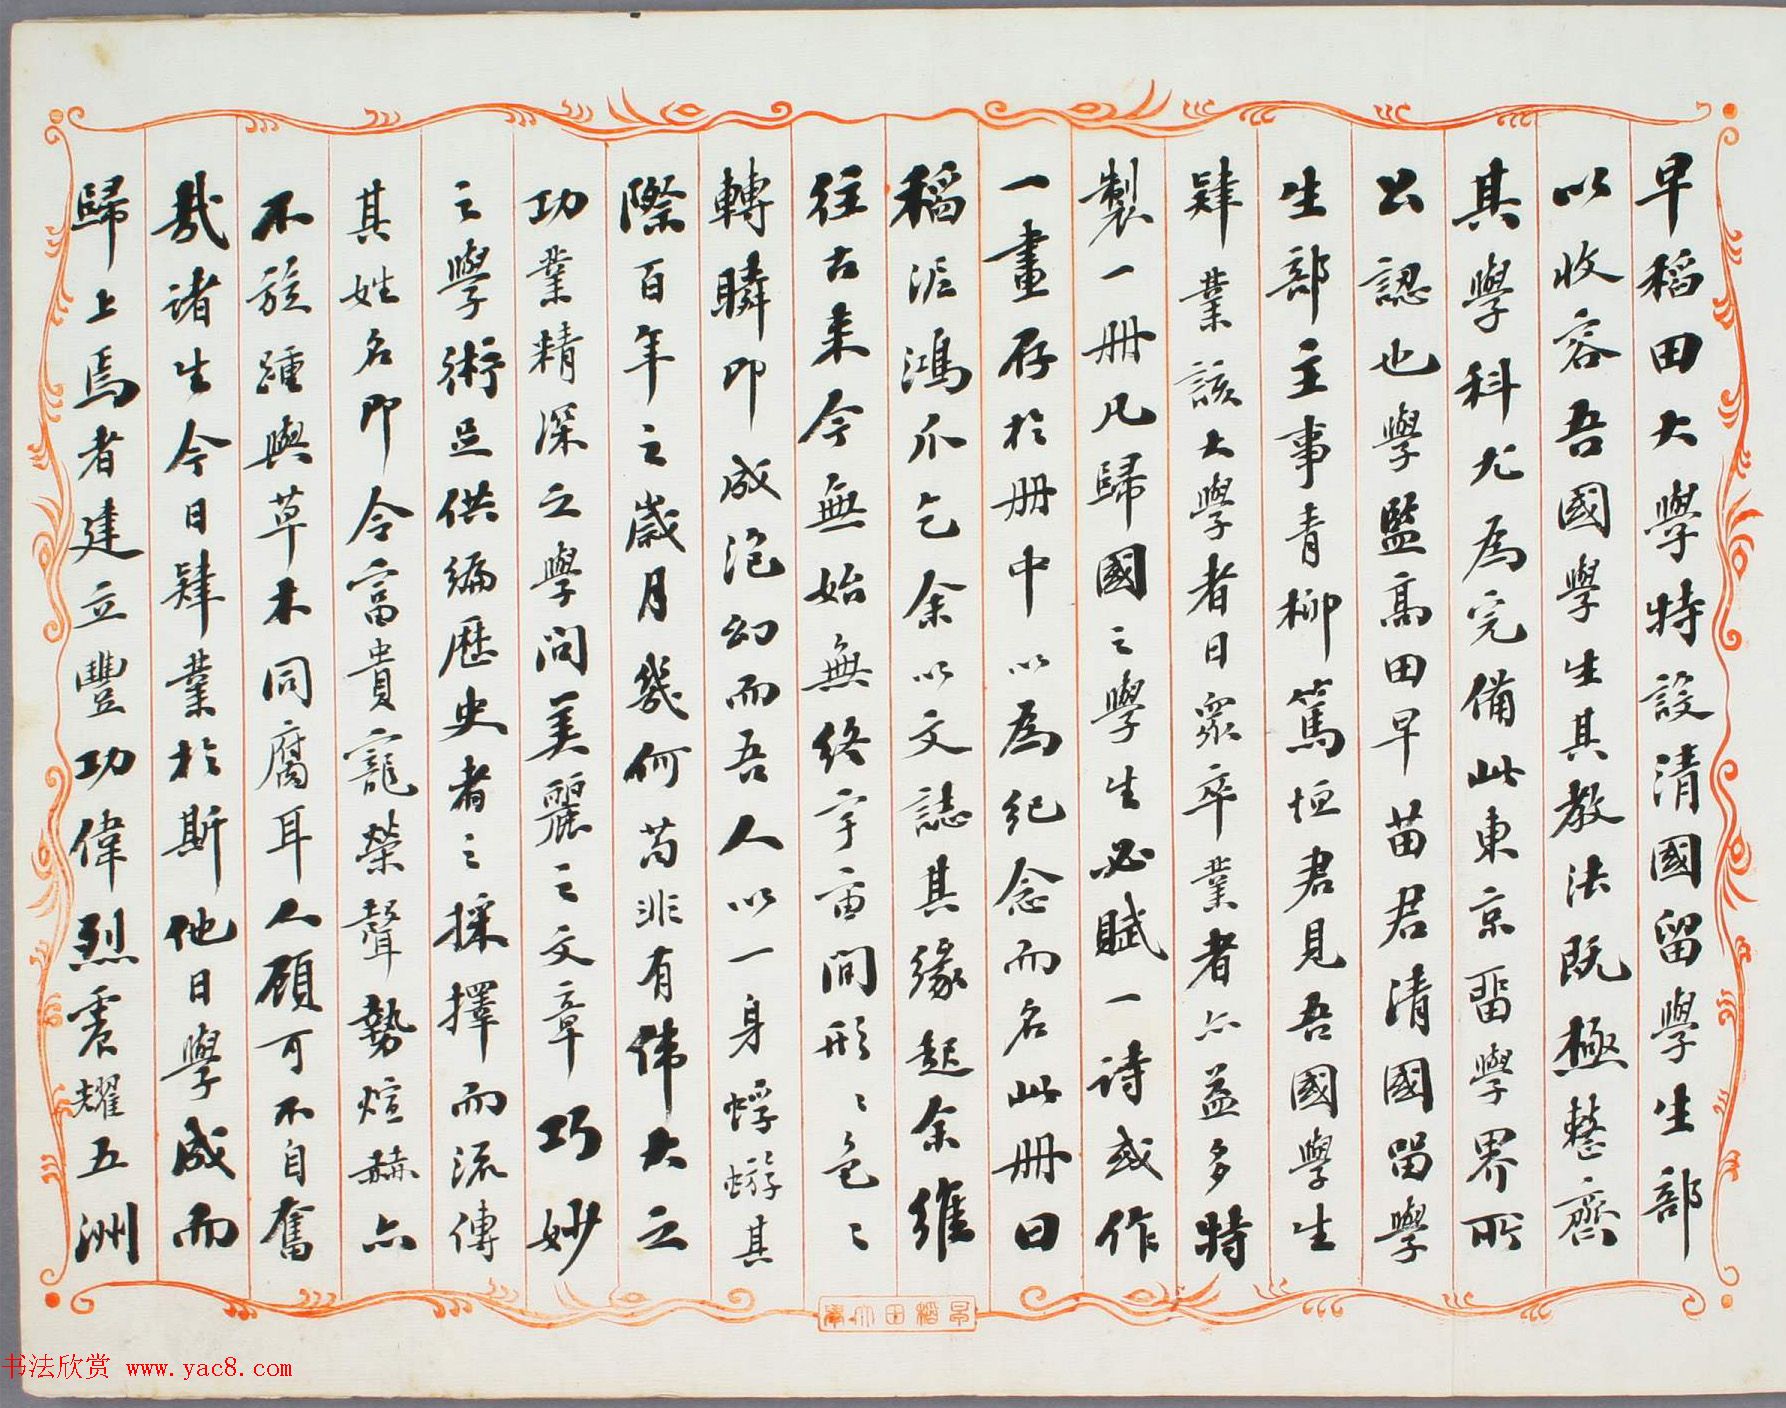 早稻田大學特設清國留學生部
以收容吾國學生其教法既極整齊
其學科尤為完備此東京留學界所
公認也學監高田早苗君清國留學
生部主事青柳篤恒君見吾國學生
肄業該大學者日衆卒業者亦益多特
製一冊凡歸國之學生必賦一詩或作
一畫存於冊中以為紀念而名此冊曰
稻泥鴻爪乞余以文誌其緣起余維
往古来今無始無終宇宙間形〻色〻
轉瞬即成泡幻而吾人以一身蜉蝣其
際百年之歲月幾何苟非有偉大之
功業精深之學問美麗之文章巧妙
之學術足供編歷史者之採擇而流傳
其姓名即令富貴寵榮聲勢煊赫亦
不旋踵與草木同腐耳人顧可不自奮
哉諸生今日肄業於斯他日學成而
歸上焉者建立豐功偉烈震耀五洲
早稻田大學
书法欣赏 www.yac8.com